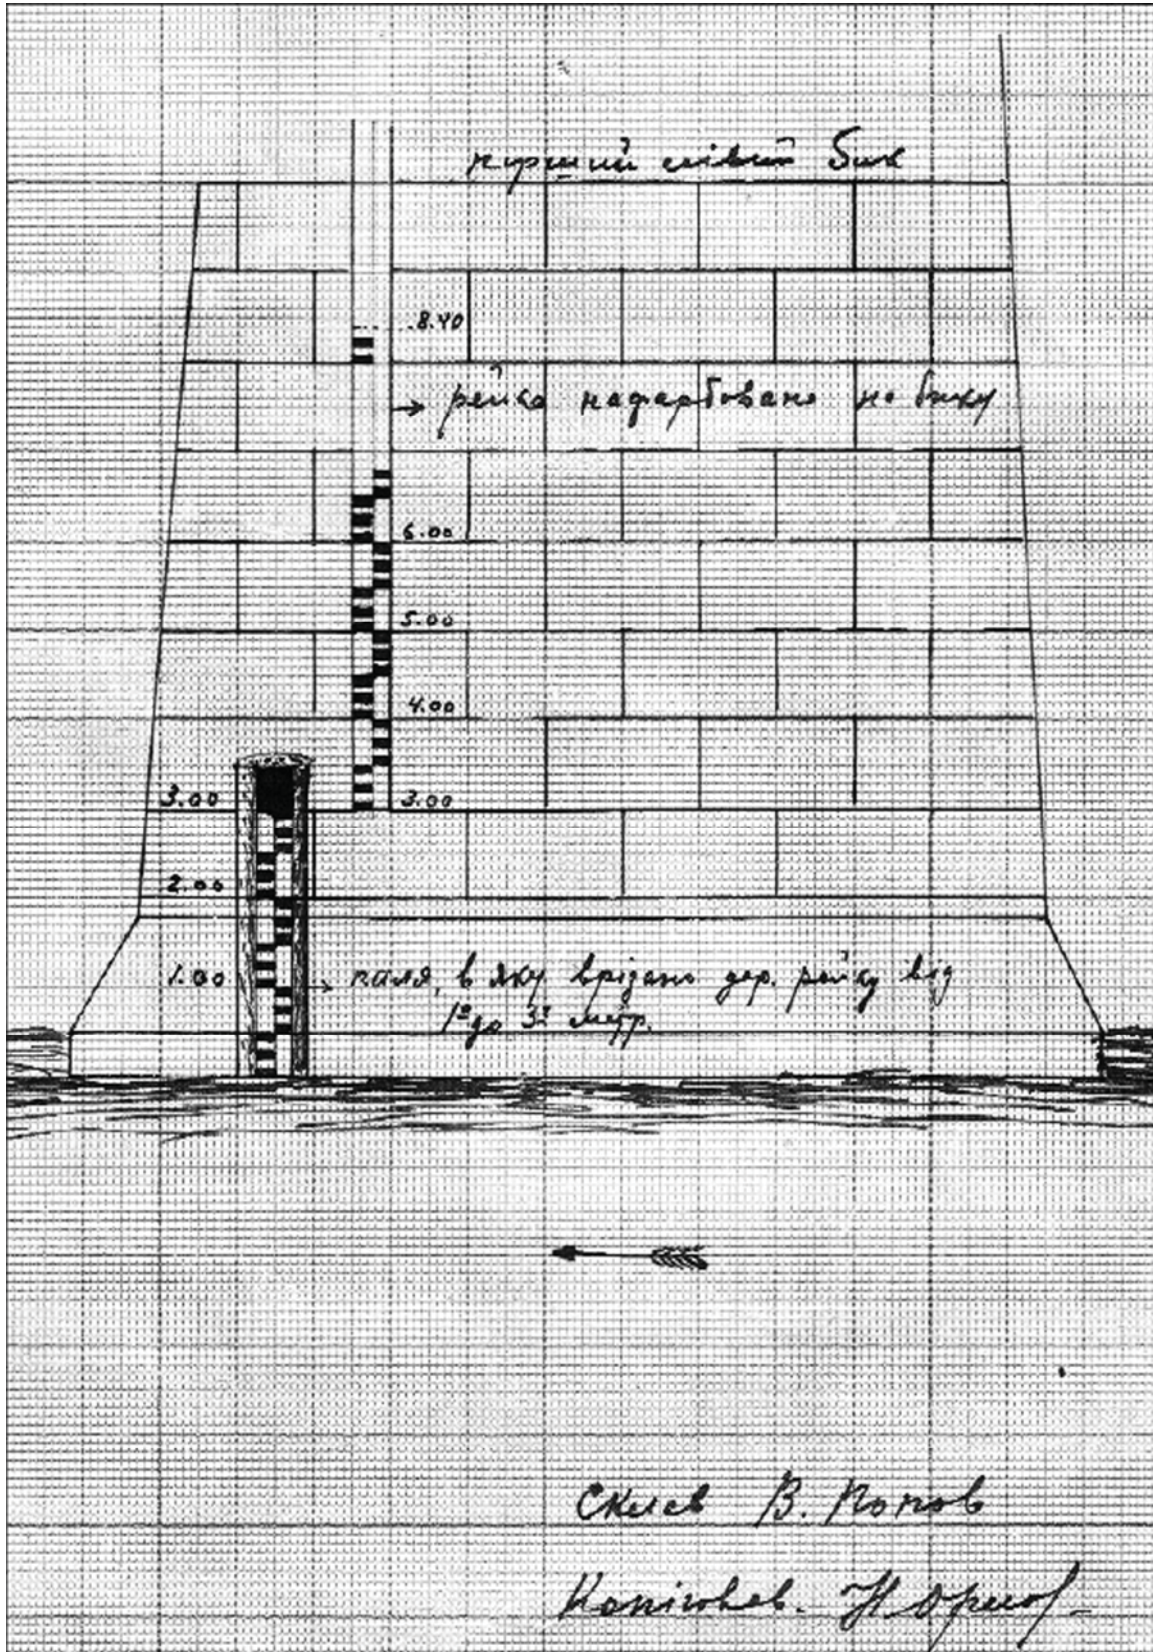 лівий бик
8.40
рейка нафарбована на бику
6.00
5.00
4.00
3.00
3.00
2.00
1.00
паля, в яку врізано дер. рейку від
1º до 3º метр.
Склав В. Попов
Копіював.